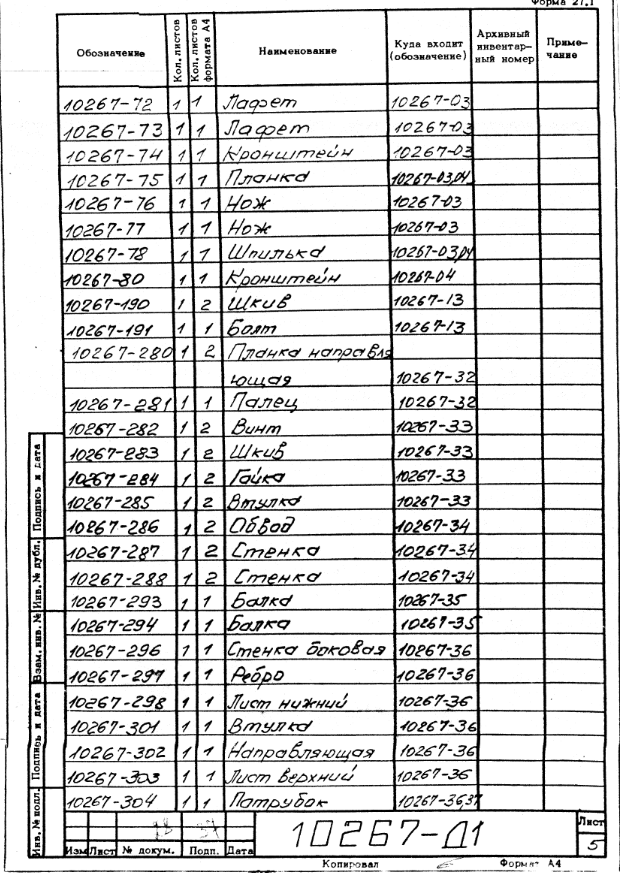 Форма 27.1
Обозначение Кол. листов Кол. листов формата А4 Наименование Куда входит (обозначение) Архивный инвентарный номер Примечание
10267-72 1 1 Лафет 10267-03
10267-73 1 1 Лафет 10267-03
10267-74 1 1 Кронштейн 10267-03
10267-75 1 1 Планка 10267-03,04
10267-76 1 1 Нож 10267-03
10267-77 1 1 Нож 10267-03
10267-78 1 1 Шпилька 10267-03,04
10267-80 1 1 Кронштейн 10267-04
10267-190 1 2 Шкив 10267-13
10267-191 1 1 Болт 10267-13
10267-280 1 2 Планка направля
ющая 10267-32
10267-281 1 1 Палец 10267-32
10267-282 1 2 Винт 10267-33
10267-283 1 2 Шкив 10267-33
10267-284 1 2 Гайка 10267-33
10267-285 1 2 Втулка 10267-33
10267-286 1 2 Обвод 10267-34
10267-287 1 2 Стенка 10267-34
10267-288 1 2 Стенка 10267-34
10267-293 1 1 Балка 10267-35
10267-294 1 1 Балка 10267-35
10267-296 1 1 Стенка боковая 10267-36
10267-297 1 1 Ребро 10267-36
10267-298 1 1 Лист нижний 10267-36
10267-301 1 1 Втулка 10267-36
10267-302 1 1 Направляющая 10267-36
10267-303 1 Лист верхний 10267-36
10267-304 1 1 Патрубок 10267-36,37
Инв. № подл. Подпись и дата Взам. инв. № Инв. № дубл. Подпись и дата
10267-Д1
Лист
5
Изм Лист № докум. Подп. Дата
Копировал Формат А4